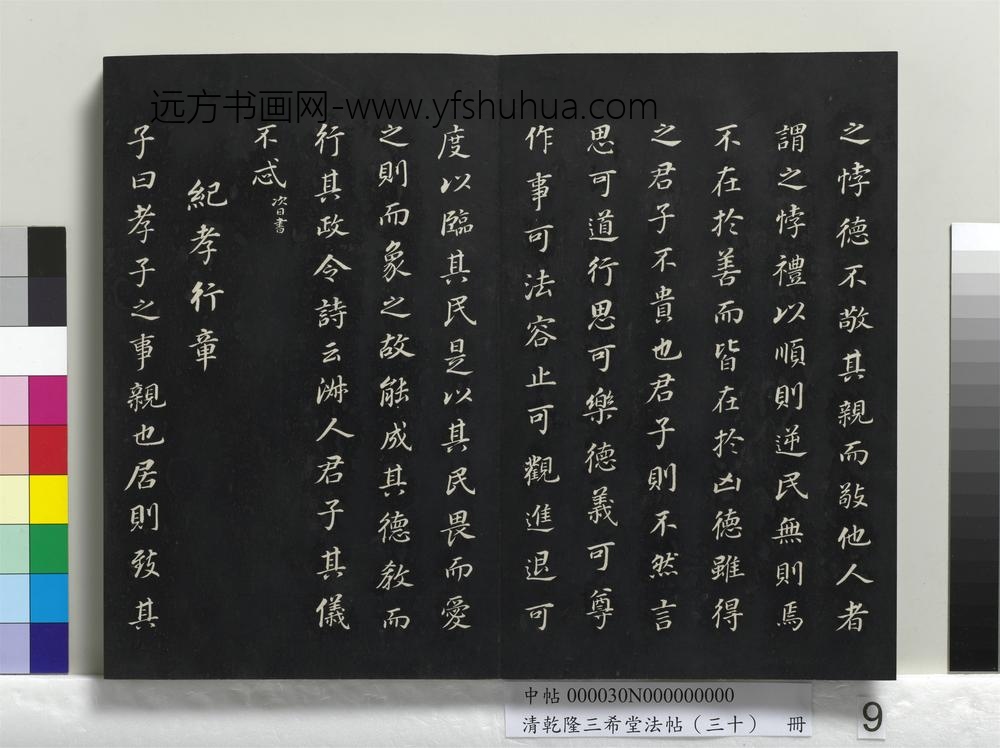 远方书画网-www.yfshuhua.com
之悖德不敬其親而敬他人者
謂之悖禮以順則逆民無則焉
不在於善而皆在於凶德雖得
之君子不貴也君子則不然言
思可道行思可樂德義可尊
作事可法容止可觀進退可
度以臨其民是以其民畏而愛
之則而象之故能成其德教而
行其政令詩云淑人君子其儀
不忒
次日書
紀孝行章
子曰孝子之事親也居則致其
中帖 000030N000000000
清乾隆三希堂法帖（三十） 冊
9